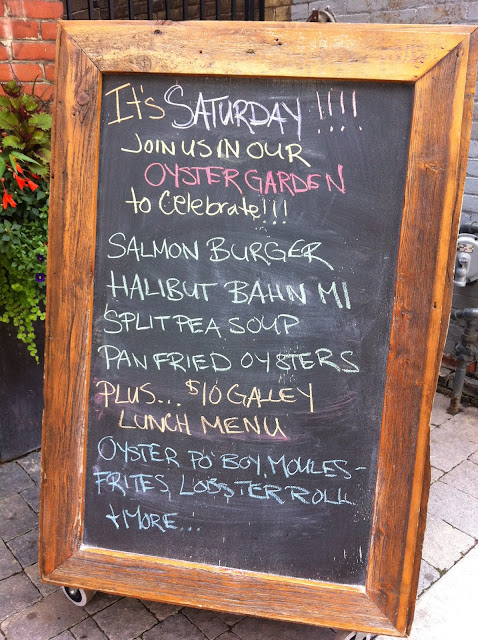 It's SATURDAY !!!!
JOIN US IN OUR
OYSTER GARDEN
to Celebrate!!!
SALMON BURGER
HALIBUT BAHN MI
SPLIT PEA SOUP
PAN FRIED OYSTERS
PLUS... $10 GALLEY
LUNCH MENU
OYSTER PO' BOY, MOULES-
FRITES, LOBSTER ROLL
+ MORE...